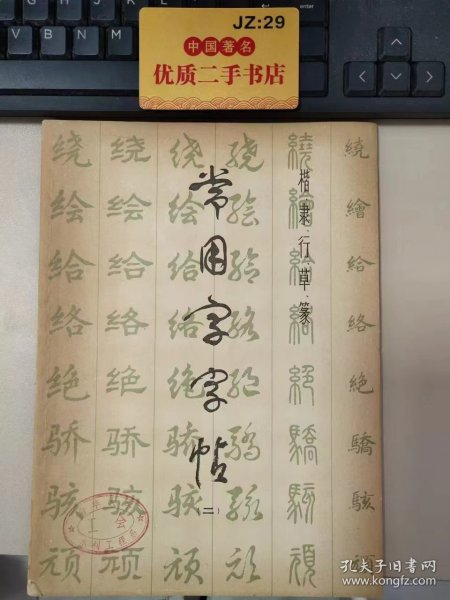 JZ:29
中国著名
优质二手书店
enter
楷.隶.行.草.篆
常用字字帖
(二)
绕 绕 绕 绕 繞 繞
绘 绘 绘 绘 繪 繪
给 给 给 给 給 給
络 络 络 络 絡 絡
绝 绝 绝 绝 絕 絶
骄 骄 骄 骄 驕 驕
骇 骇 骇 骇 駭 駭
顽 顽 顽 顽 頑
工会
孔夫子旧书网
book.kongfz.com